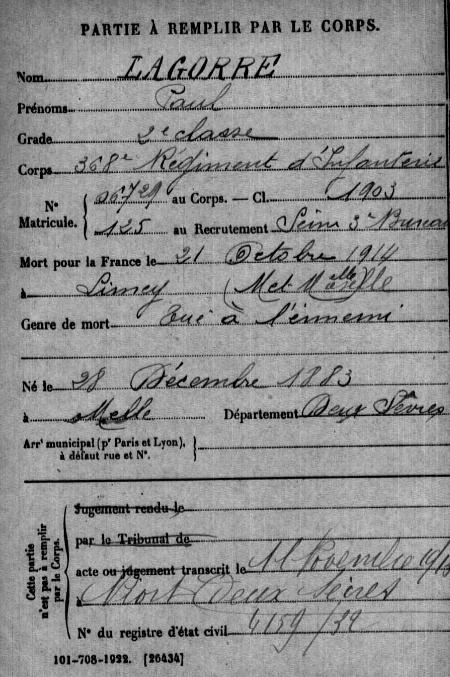 PARTIE À REMPLIR PAR LE CORPS.
Nom LAGORRE
Prénoms Paul
Grade 2e classe
Corps 368e Régiment d'Infanterie
N° Matricule.
06729 au Corps. — Cl. 1903
125 au Recrutement Seine 3e Bureau
Mort pour la France le 21 Octobre 1914
à Limey (Met Melle)
Genre de mort Tué à l'ennemi
Né le 28 Décembre 1883
à Melle Département Deux Sèvres
Arrt municipal (pr Paris et Lyon),
à défaut rue et N°.
Cette partie n'est pas à remplir par le Corps.
Jugement rendu le
par le Tribunal de
acte ou jugement transcrit le 11 Novembre
à Niort Deux Sèvres
N° du registre d'état civil 6159/39
101-708-1922. [26434]